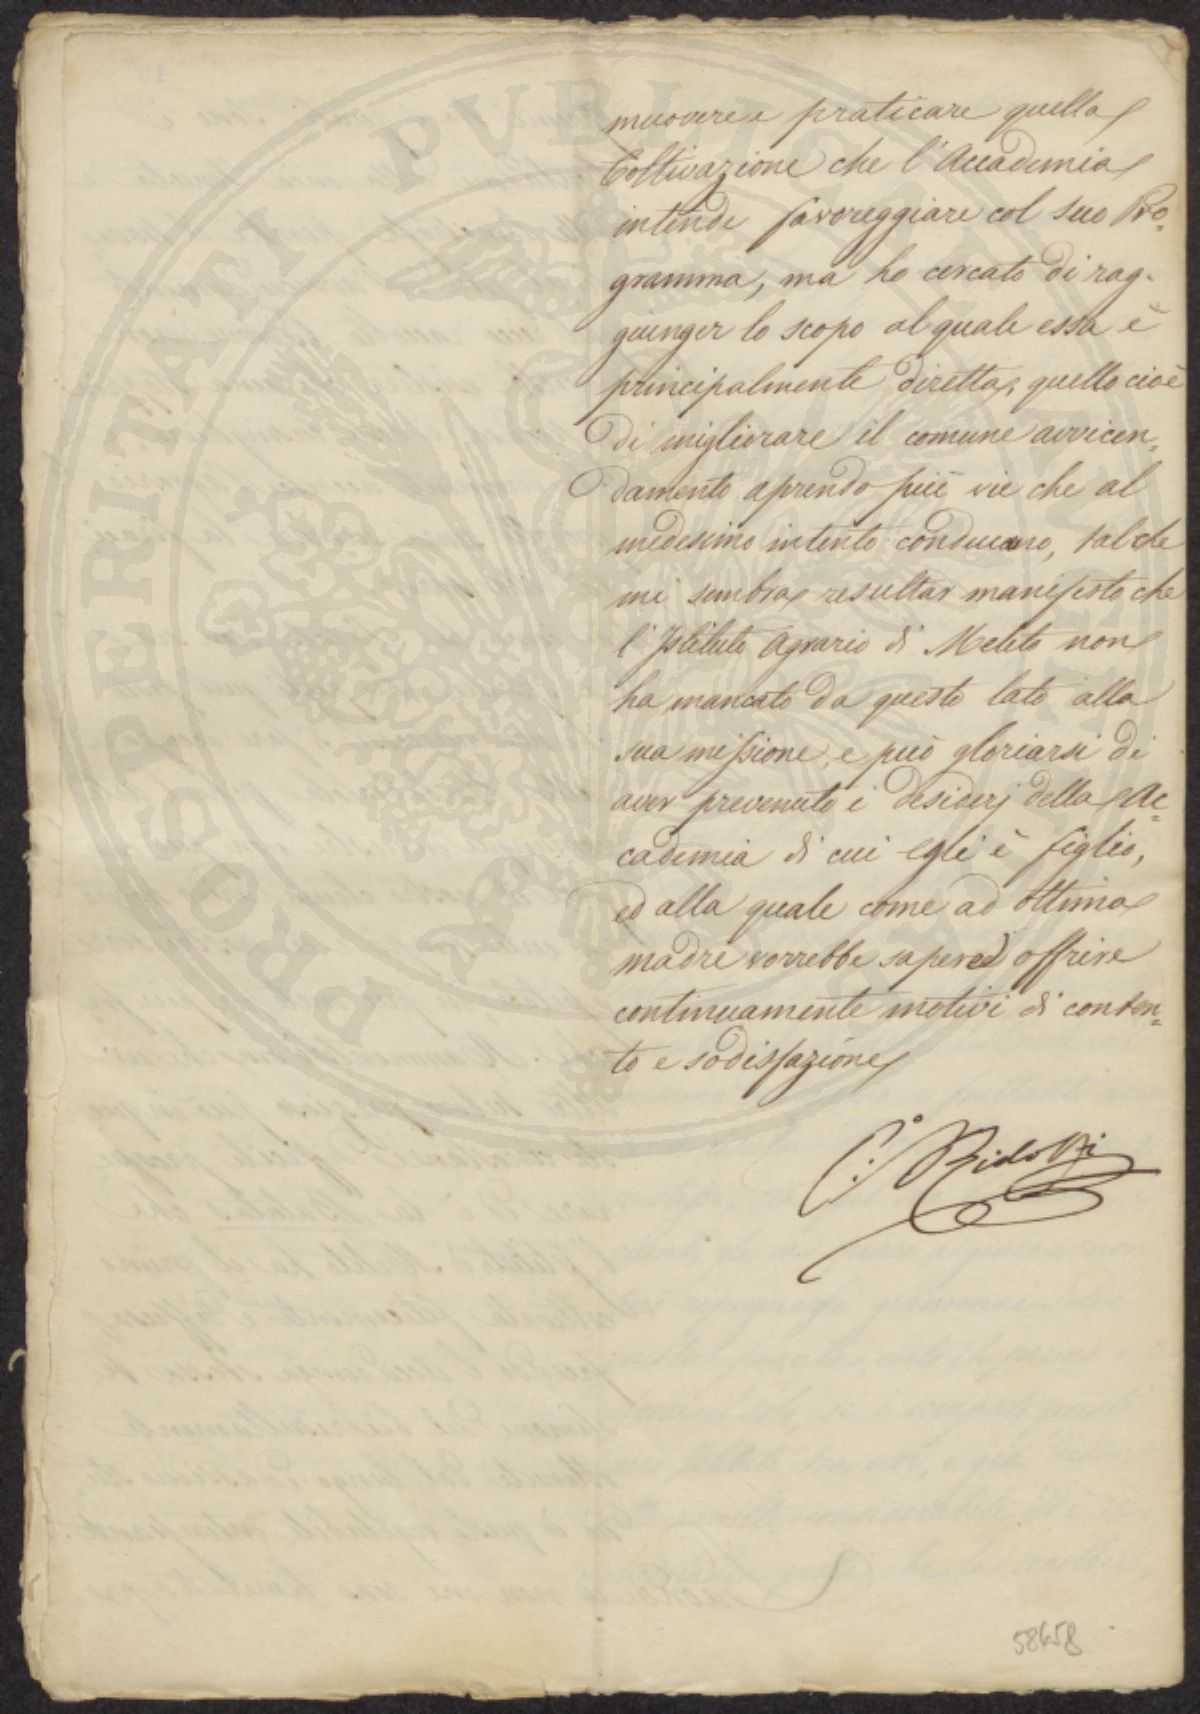 muovere e praticare quella
Coltivazione che l'Accademia
intende favoreggiare col suo Pro=
gramma, ma ho cercato di rag-
giunger lo scopo al quale essa è
principalmente diretta, quello cioè
di migliorare il comune avvicen=
damento aprendo più vie che al
medesimo intento conducano, tal che
mi sembra resultar manifesto che
l'Istituto Agrario di Meleto non
ha mancato da questo lato alla
sua missione, e può gloriarsi di
aver prevenuto i desiderj della Ac=
cademia di cui egli è figlio,
ed alla quale come ad ottima
madre vorrebbe saper offrire
continuamente motivi di conten=
to e sodisfazione
C. Ridolfi
58458
PROSPERITATI PUBLICAE